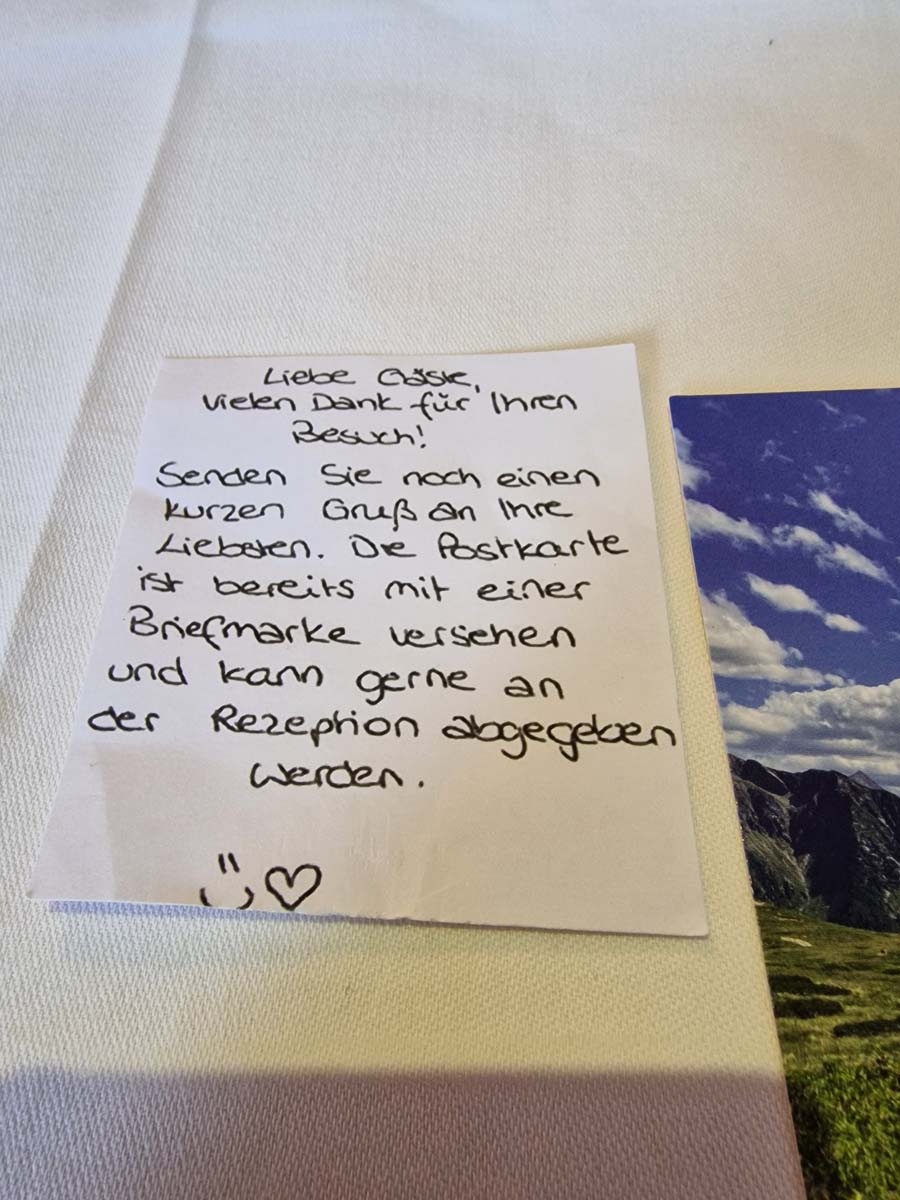 Liebe Gäste,
vielen Dank für Ihren
Besuch!
Senden Sie noch einen
kurzen Gruß an Ihre
Liebsten. Die Postkarte
ist bereits mit einer
Briefmarke versehen
und kann gerne an
der Rezeption abgegeben
werden.